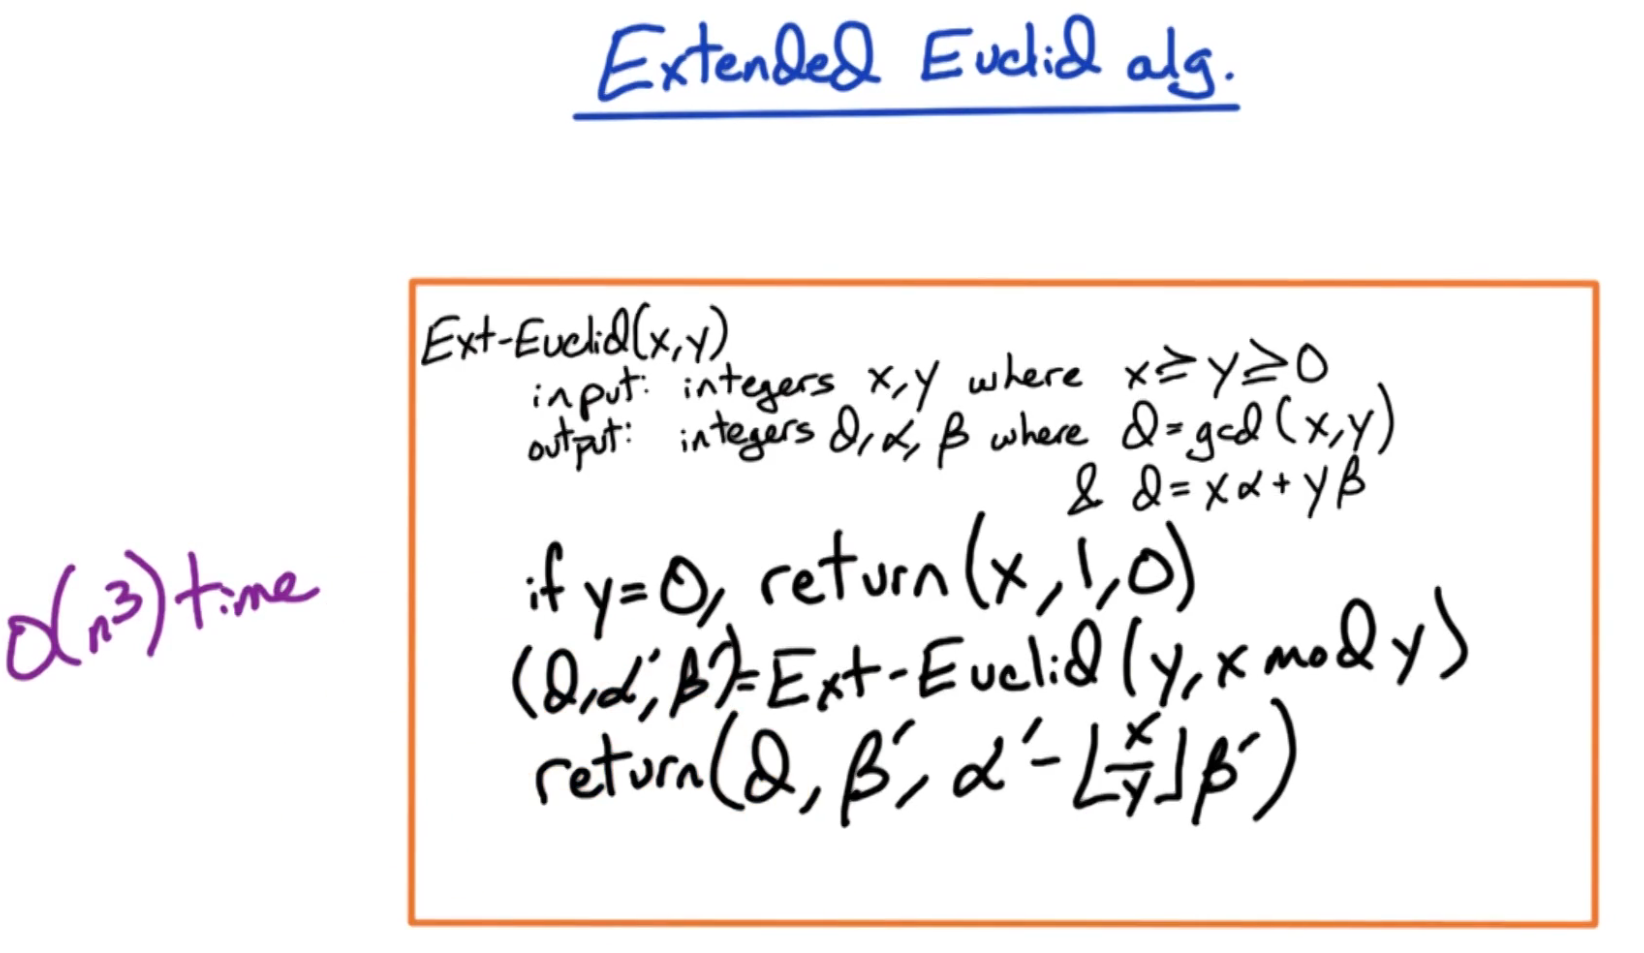 Extended Euclid alg.
Ext-Euclid(x,y)
input: integers x,y where x≥y≥0
output: integers d,α,β where d=gcd(x,y)
& d=xα+yβ
if y=0, return(x,1,0)
(d,α′,β′)=Ext-Euclid(y,x mod y)
return(d,β′,α′-⌊x/y⌋β′)
O(n³) time